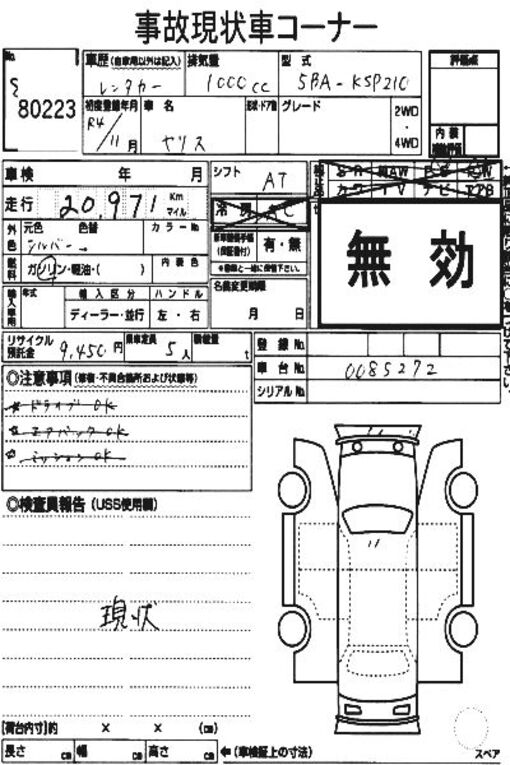 事故現状車コーナー
No. 80223
車歴 (自家用以外は記入) レンタカー
排気量 1000cc
型式 5BA-KSP210
評価点
内装
初度登録年月 R4/11月
車名 ヤリス
形状・ドア数
グレード
2WD・4WD
車検 年 月
シフト AT
走行 20,971 Km マイル
冷房
外色 元色 シルバー 色替
カラーNo.
有・無
燃料 ガソリン・軽油・( )
内装色
名義変更期限 月 日
無効
輸入車用 年式 輸入区分 ディーラー・並行 ハンドル 左・右
リサイクル預託金 9,450円
乗車定員 5人
積載量 t
登録No.
車台No. 0085272
シリアルNo.
◎注意事項 (修復・不具合箇所および状態等)
ドライブOK
エアバックOK
ミッションOK
◎検査員報告 (USS使用欄)
現状
[荷台内寸]約 × × (cm)
長さ cm 幅 cm 高さ cm ←(車検証上の寸法)
スペア